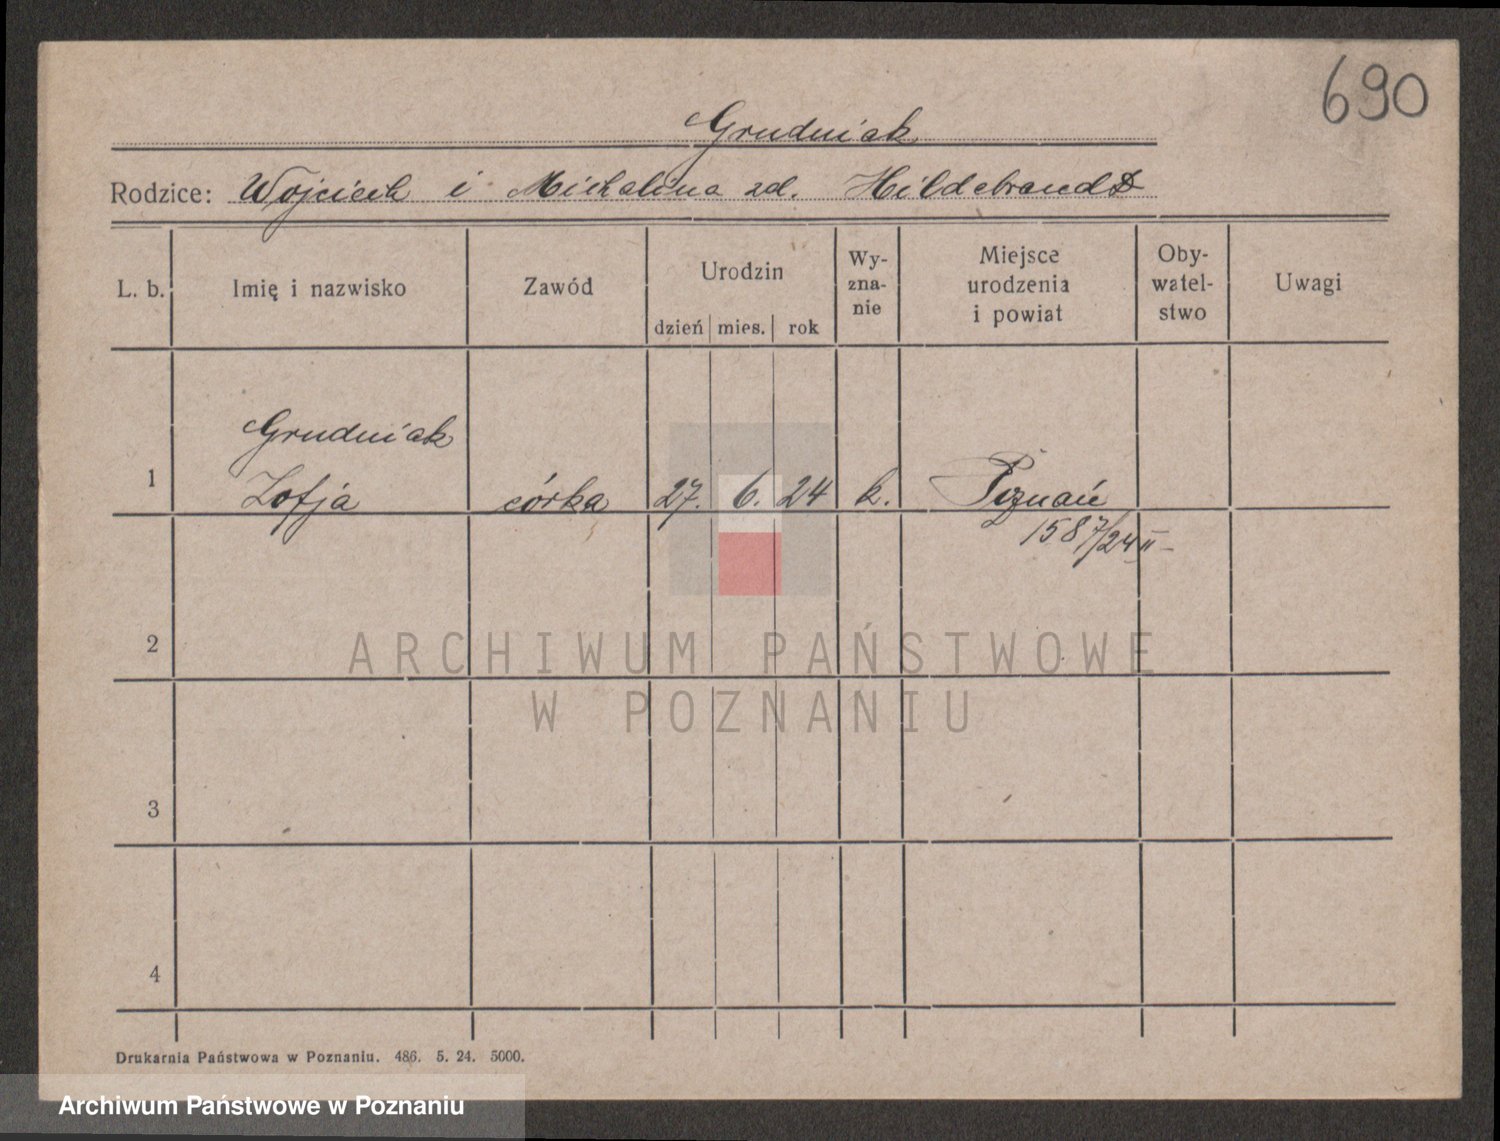 690
Grudniak
Rodzice: Wojciech i Michalina zd. Hildebrandt
L. b. Imię i nazwisko Zawód Urodzin dzień mies. rok Wy-zna-nie Miejsce urodzenia i powiat Oby-watel-stwo Uwagi
Grudniak
1 Zofja córka 27. 6. 24 k. Poznań
1587/24 II
2
ARCHIWUM PAŃSTWOWE
W POZNANIU
3
4
Drukarnia Państwowa w Poznaniu. 486. 5. 24. 5000.
Archiwum Państwowe w Poznaniu